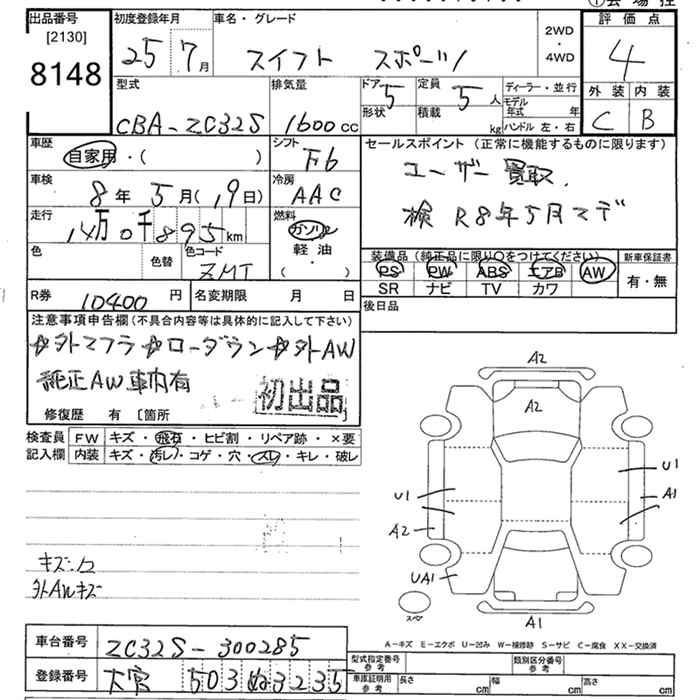 出品番号
[2130]
8148
初度登録年月
25 7月
車名・グレード
スイフト スポーツ
2WD
・
4WD
評価点
4
外装 内装
C B
型式
CBA-ZC32S
排気量
1600 cc
ドア 5
形状
定員 5 人
積載 kg
ディーラー・並行
モデル年式 年
ハンドル 左・右
車歴
自家用・( )
シフト
F6
車検
8年 5月(19日)
冷房
AAC
走行
14万0千895km
燃料
ガソリン
軽油
( ・ )
色
色替
色コード
ZMT
R券
10400円
名変期限 月 日
セールスポイント(正常に機能するものに限ります)
ユーザー買取.
検 R8年5月マデ
装備品(純正品に限り○をつけてください)
PS PW ABS エアB AW
SR ナビ TV カワ
新車保証書
有・無
後日品
注意事項申告欄(不具合内容等は具体的に記入して下さい)
☆外マフラ ☆ローダウン ☆外AW
純正AW車内有
初出品
修復歴 有 [箇所
検査員記入欄
FW キズ・飛石・ヒビ割・リペア跡・×要
内装 キズ・汚レ・コゲ・穴・スレ・キレ・破レ
キズ・凹
外AWキズ
A2
A2
U1
A1
U1
A2
UA1
スペア
A1
A-キズ E-エクボ U-凹み W-補修跡 S-サビ C-腐食 XX-交換済
車台番号
ZC32S-300285
登録番号
大宮 503 ぬ 3235
型式指定番号 参考
類別区分番号 参考
車庫証明用 参考
長さ cm 幅 cm 高さ cm